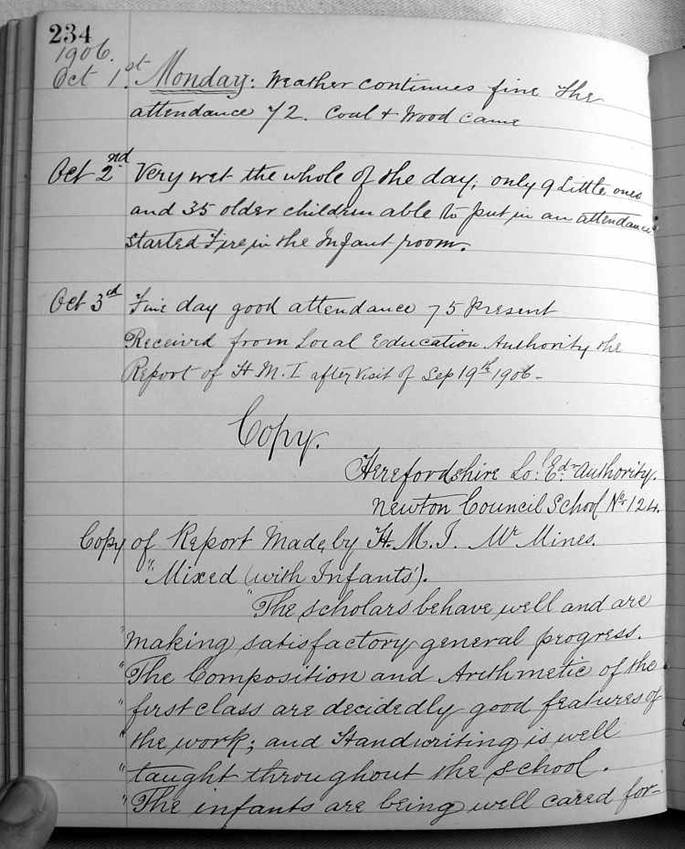 234
1906.
Oct 1st. Monday: Weather continues fine The
attendance 72. Coal & Wood came
Oct 2nd Very wet the whole of the day, only 9 Little ones
and 35 older children able to put in an attendance.
Started Fire in the Infant room.
Oct 3rd Fine day good attendance 75 Present
Received from Local Education Authority the
Report of H.M.I after Visit of Sep 19th 1906-
Copy.
Herefordshire Lo: Ed. Authority.
Newton Council School No. 124.
Copy of Report Made by H.M.I. Mr Mines.
"Mixed (with Infants').
"The scholars behave well and are
"making satisfactory general progress.
"The Composition and Arithmetic of the
"first class are decidedly good features of
"the work; and Handwriting is well
"taught throughout the school.
"The infants are being well cared for-